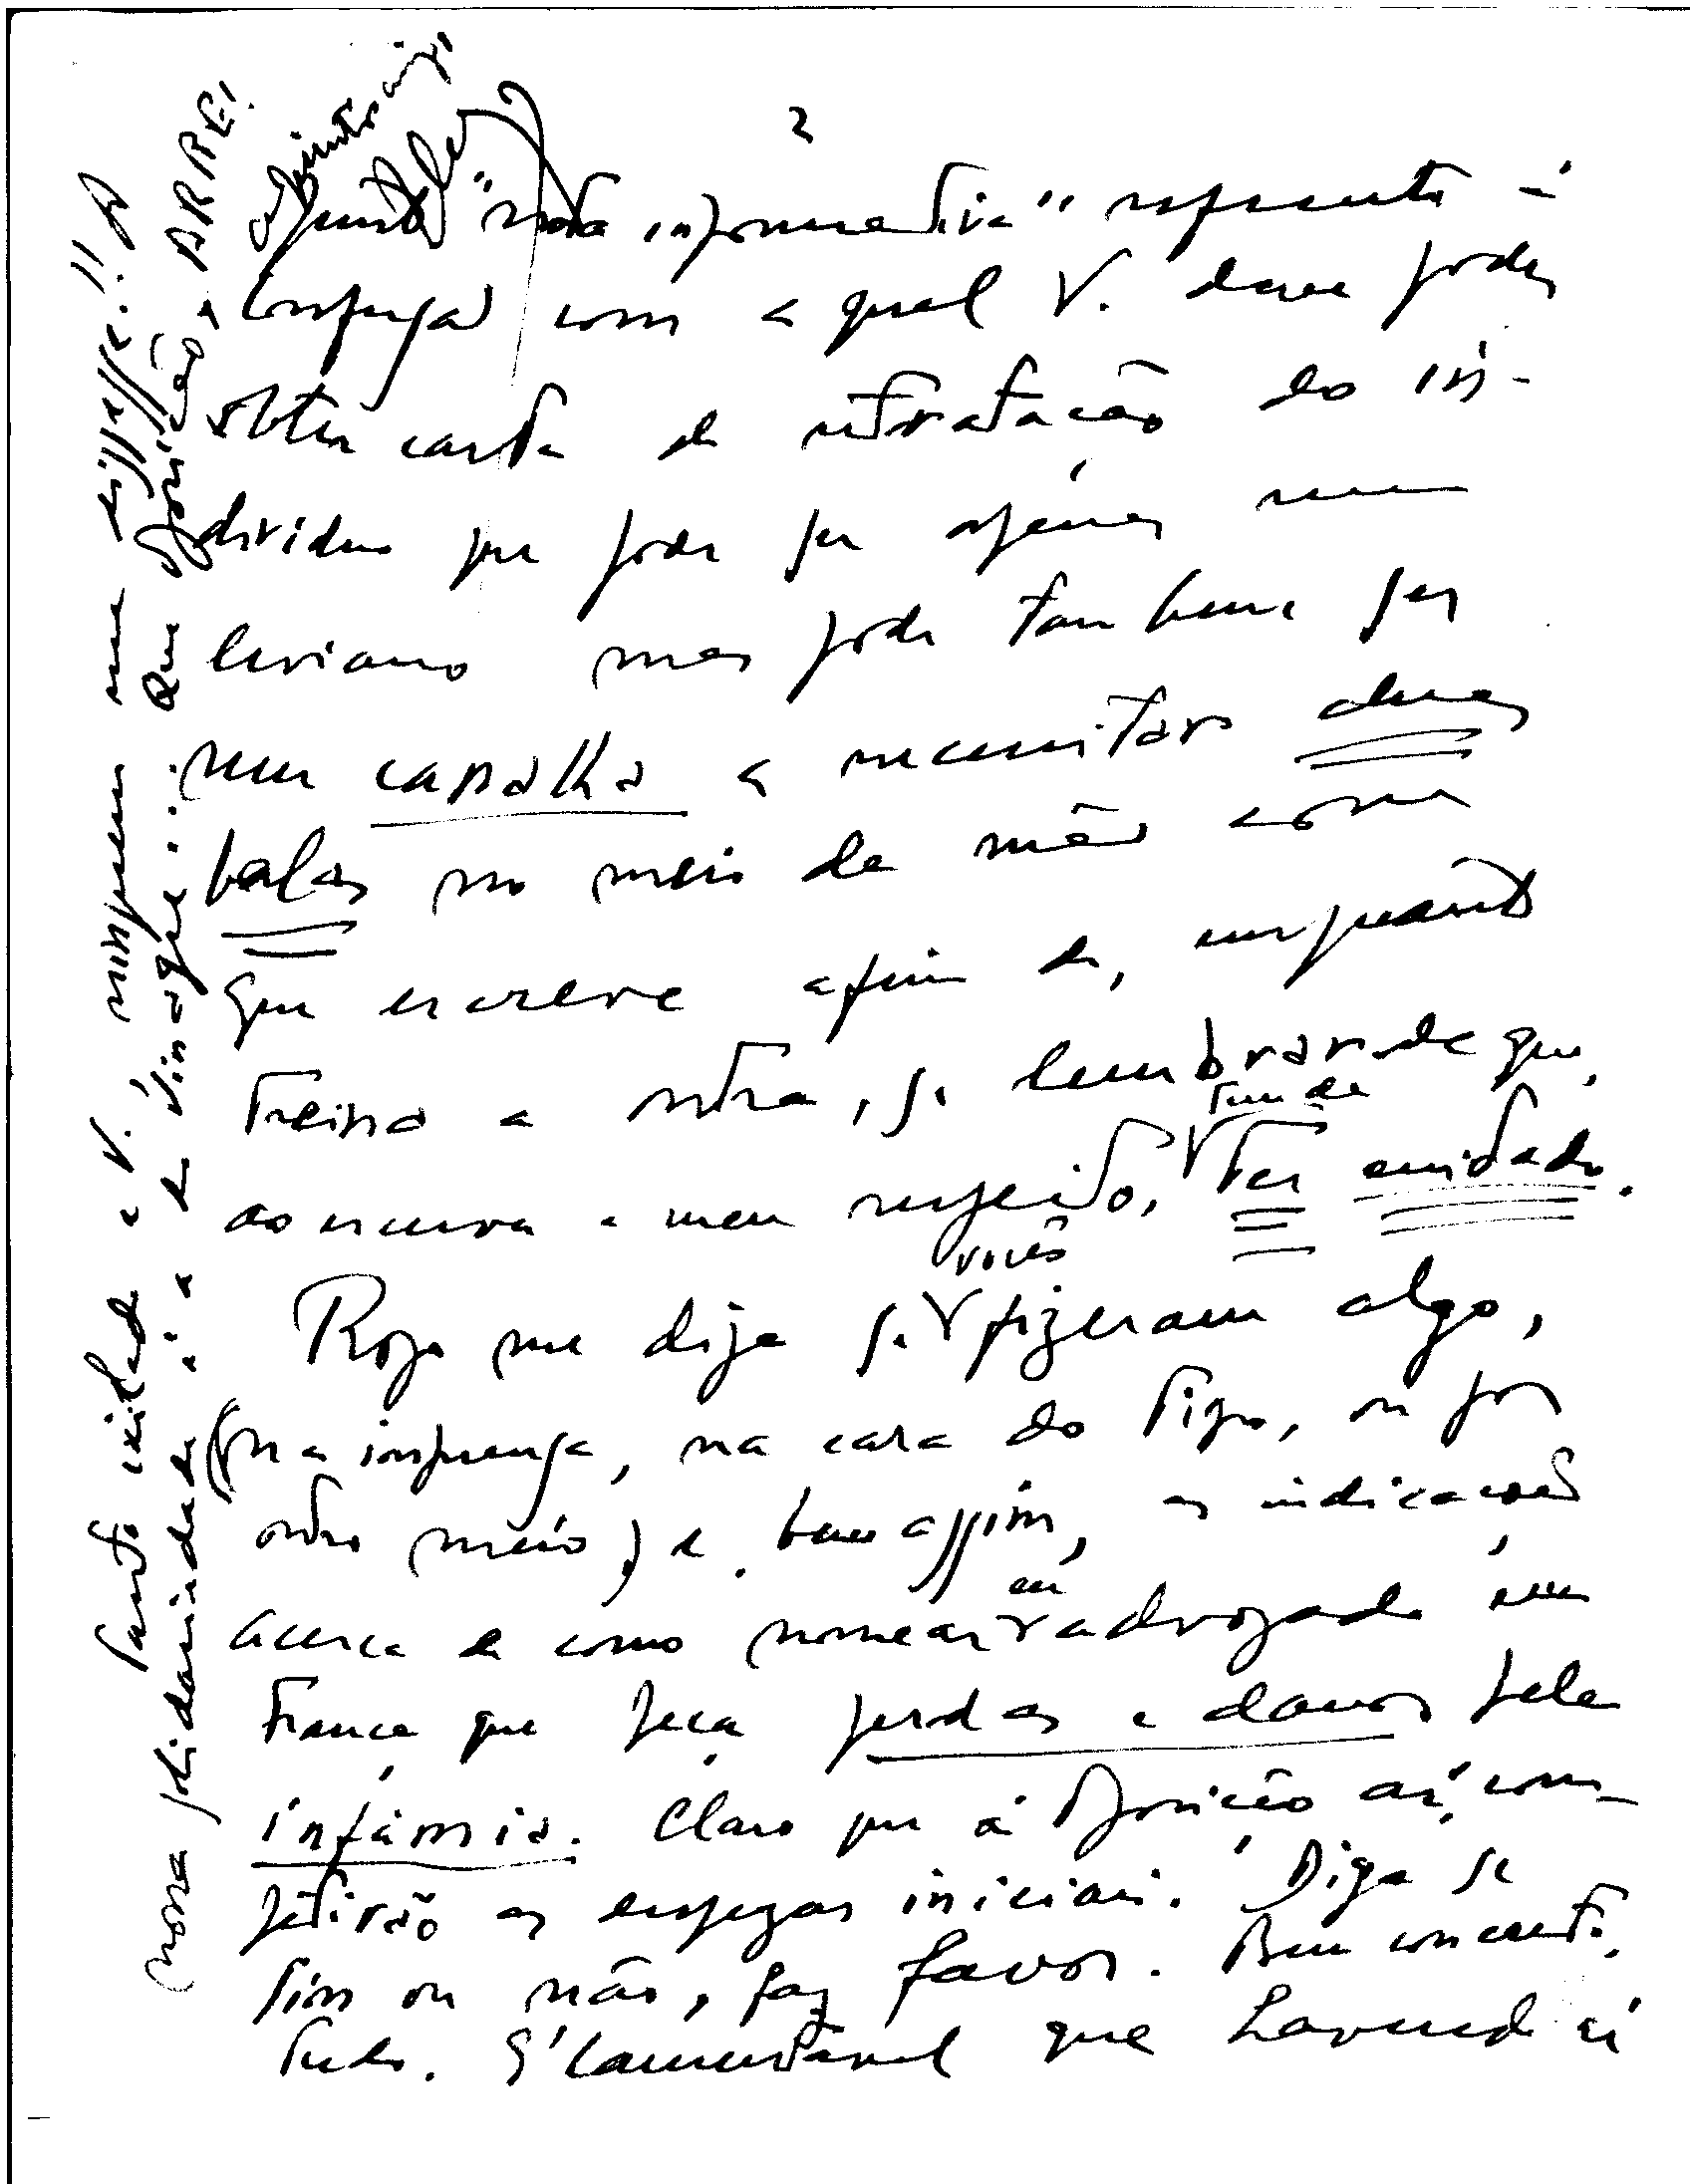 2
Junto "nota informativa" referente à
com a qual V. deve poder
obter carta de retratação do in-
dividuo que pode ser apenas um
leviano mas pode tambem ser
um canalha a necessitar duas
balas no meio da mão com
que escreve afim de, enquanto
treina a outra, se lembrar de que,
ao escrever a meu respeito, tem de ter cuidado.
Rogo me diga se vocês fizeram algo,
(na imprensa, na cara do tipo, ou por
outro meio) e, bem assim, as indicações
acerca de como nomear eu advogado em
França que peça perdas e danos pela
infâmia. Claro que á Oposição aí, com-
petirão as despezas iniciais. Diga se
sim ou não, faz favor. Bem concreto,
tudo. É lamentavel que havendo aí
tanto exilado e V., ninguem me dissesse!! A
nossa solidariedade é a de vinagre... Que Oposição, ARRE!